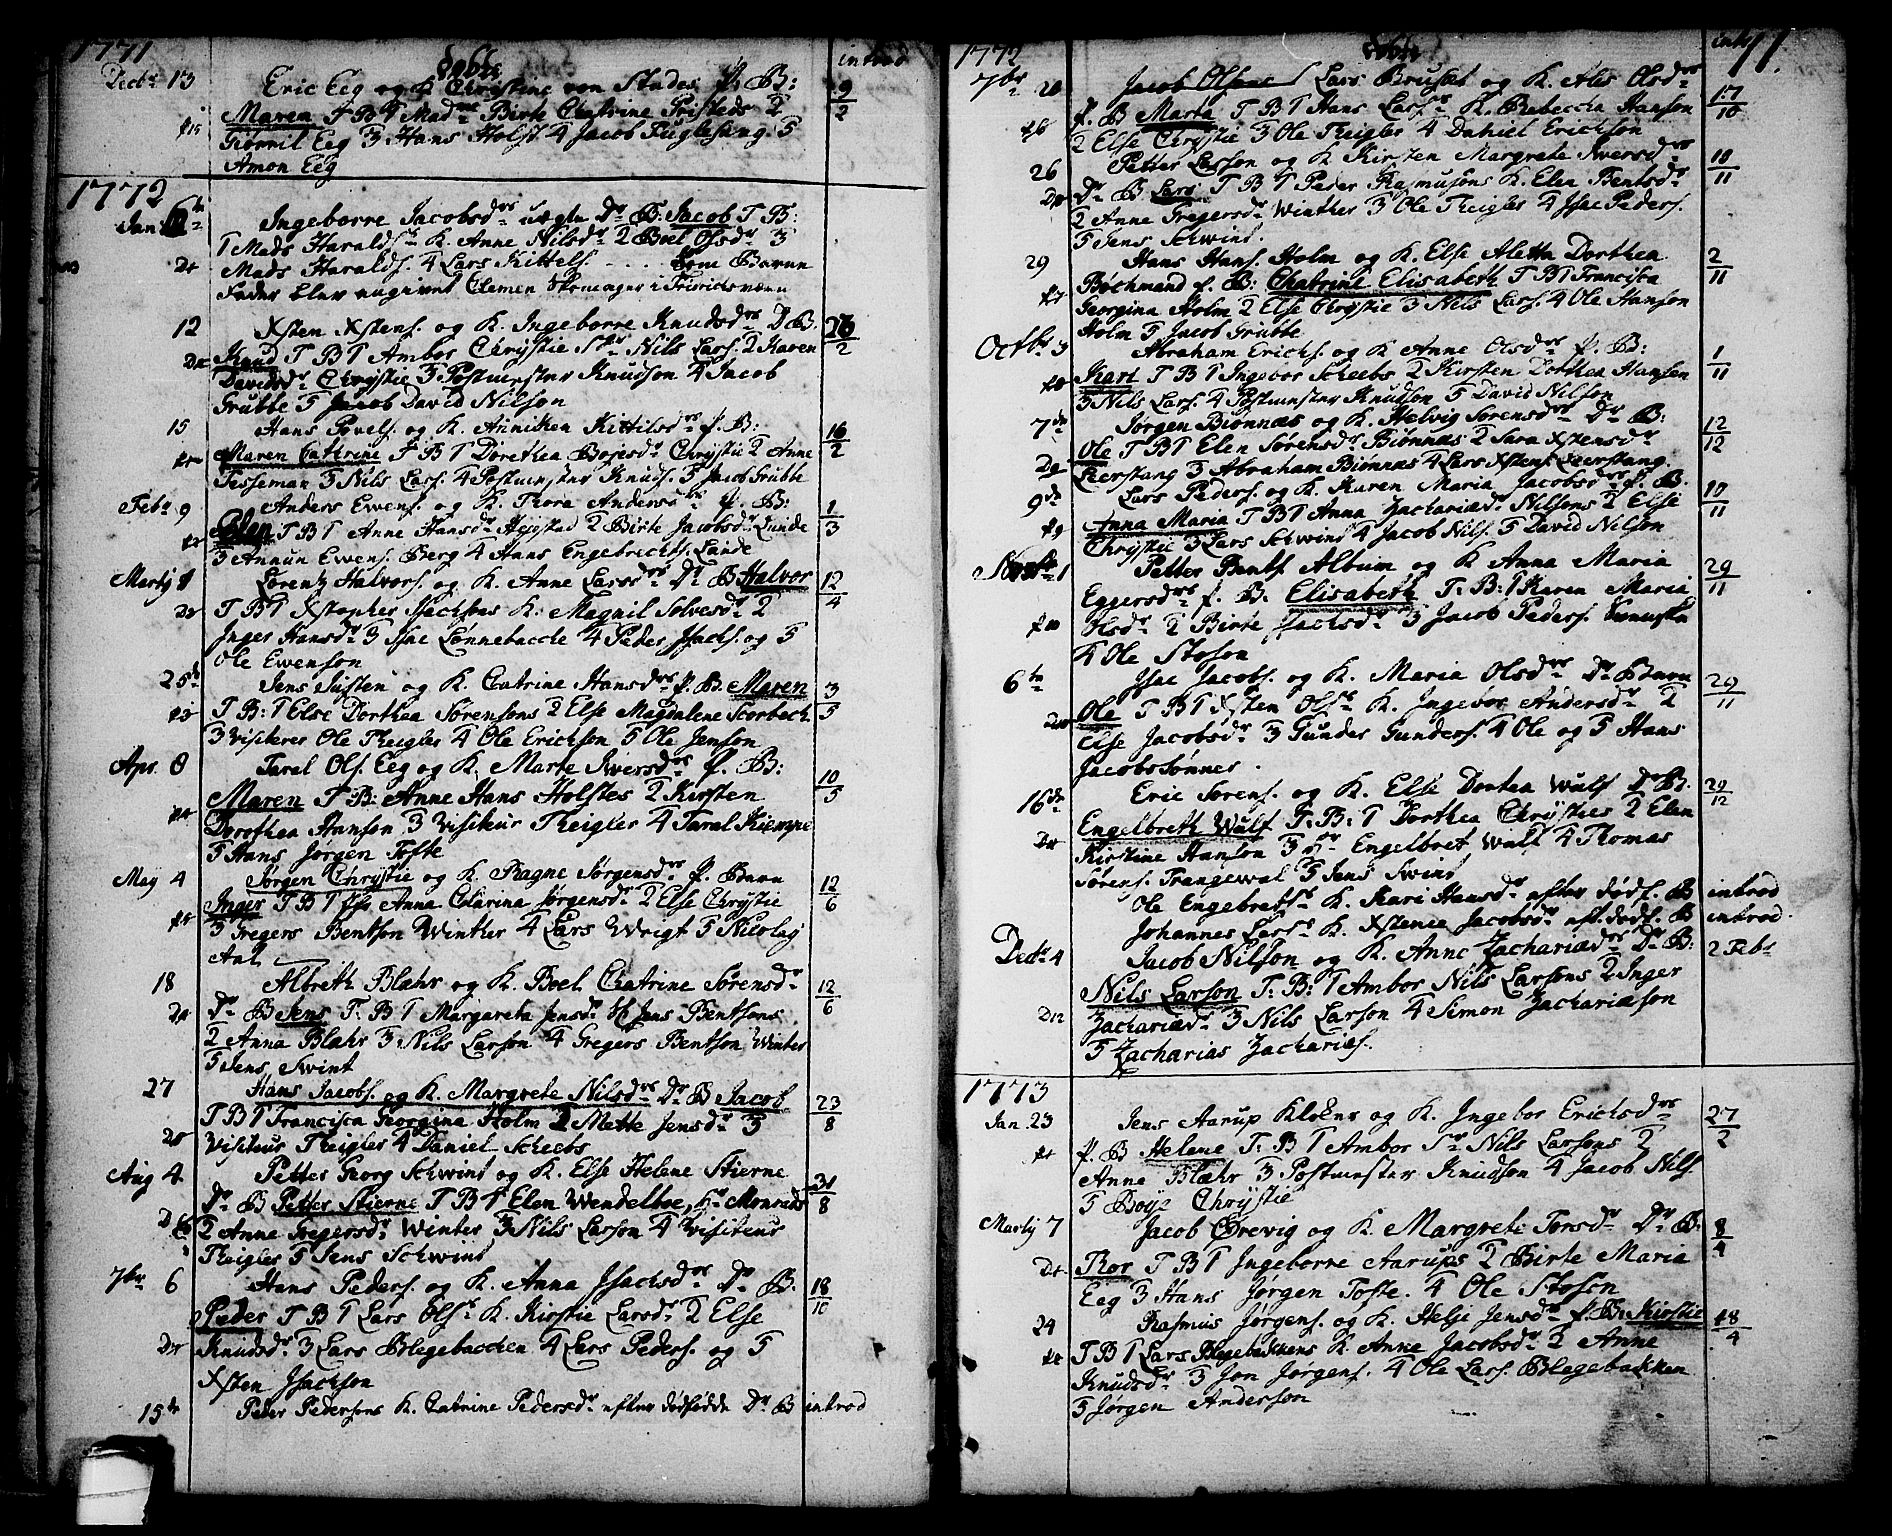 1771 Døbte introd
Decbr 13 Eric Eeg og K. Christine von Stades P. B: 9/2
Maren F B 1 Madme Birte Chatrine Pristeds 2
P15 Tiørril Eeg 3 Hans Holst 4 Jacob Fuglesang 5
Amon Eeg
1772
Jan 6te Ingeborre Jacobsdr uægte Dr B: Jacob F B:
1 Mads Haralds K. Anne Nilsdr 2 Boel Olsdr 3
D1 Mads Haralds. 4 Lars Kittels. - - - Som Barne
Fader blev angivet Clemen Skoninger i Fridrichsværn
12 Xsten Xstens. og K. Ingeborre Knudsdr D B. 26/2
D2 Knud F B 1 Ambor Chrystie Sr Nils Lars. 2 Karen
Davidsdr Chrystie 3 Postmester Knudson 4 Jacob
Grubbe 5 David Nilson
15 Hans Povels. og K. Anniken Kittilsdr P. B: 16/2
P1 Maren Cathrine F B 1 Dorethea Bojesdr Chrystie 2 Anne
Tisseman 3 Nils Lars. 4 Postmester Knuds. 5 Jacob Grubbe
Febr 9 Anders Ewens. og K. Thore Andersdr P. B: 1/3
P2 Elen F B 1 Anne Hansdr Heistad 2 Birte Jacobsdr Lunde
3 Amun Ewens. Berg 4 Hans Engebrechts. Lunde
Martij 1 Lorentz Halvors. og K. Anne Larsdr Dr B Halvor 12/4
D3 F B 1 Xstopher Isachsons K. Magnil Solvesdr 2
Inger Hansdr 3 Isac Lønnebacche 4 Peder Isachs. og 5
Ole Ewenson
25de Jens Justen og K. Catrine Hansdr P. B. Maren 3/5
P3 F B: 1 Else Dorthea Sørensons 2 Else Magdalene Scorbech
3 Visiterer Ole Theigler 4 Ole Erichson 5 Ole Jenson
Apr. 8 Taral Ols. Eeg og K. Marte Iversdr P. B: 10/5
P4 Maren F B: Anne Hans Holstes 2 Kirsten
Dorothea Hanson 3 Visiteur Theigler 4 Taral Kiempe
5 Hans Jørgen Tofte
Maij 4 Jørgen Chrystie og K. Ragne Jørgensdr P. Barn 12/6
P5 Inger F B 1 Anna Catarina Jørgensdr 2 Else Chrystie
3 Gregers Bentson Winther 4 Lars Wrigt 5 Nicolay
Aal
18 Albreth Blæhr og K. Boel Chatrine Sørensdr 12/6
D4 Dr B Jens F. B 1 Margareta Jensdr Jens Bentsons
2 Anna Blæhr 3 Nils Larson 4 Gregers Bentson Winter
5 Jens Swint
27 Hans Jacobs. og K. Margrete Nilsdr Dr B Jacob 23/8
D5 F B 1 Francisca Georgina Holm 2 Mette Jensdr 3
Visiteur Theigler 4 Daniel Scheebs
Aug 4 Petter Georg Schwint og K. Else Helene Stierne 31/8
Dr B Petter Stierne F B 1 Elen Wendelboe, Hr Monrads
D6 2 Anne Gregersdr Winter 3 Nils Larson 4 Visiteur
Theigler 5 Jens Schwint
7br 6 Hans Peders. og K. Anna Isachsdr Dr B. 18/10
Peder F B 1 Lars Ols. K. Kirstie Larsdr 2 Else
D7 Knudsdr 3 Lars Blegebacchen 4 Lars Peders. og 5
Xsten Isachson
15de Peder Pedersons K. Catrine Pedersdr efter dødfødde Dr B introd
1772 Døbte intr 11.
7br 20 Jacob Olsens Lars Bruset og K. Ales Olsdr 17/10
P. B Marta F B 1 Hans Lars. K. Rebeccha Hanson
P6 2 Else Chrystie 3 Ole Theigler 4 Daniel Erichson
26 Petter Larson og K. Kirsten Margrete Iversdr 18/11
D8 Dr B Lars F B 1 Peder Rasmusons K. Elen Bentsdr
2 Anne Gregersdr Winther 3 Ole Theigler 4 Isac Peders.
5 Jens Schwint.
29 Hans Hans. Holm og K. Else Aletta Dorthea 2/11
Bøchmand P. B: Chatrine Elisabeth F B 1 Francisca
P7 Georgina Holm 2 Else Chrystie 3 Nils Lars. 4 Ole Hanson
Holm 5 Jacob Grubbe
Octbr 3 Abraham Erichs. og K. Anne Olsdr P. B: 1/11
P8 Kari F B 1 Ingebor Scheebs 2 Kirsten Dorthea Hansen
3 Nils Lars. 4 Postmester Knudson 5 David Nilson
7de Jørgen Biønnæs og K. Helvig Sørensdr Dr B: 12/12
Ole F B 1 Elen Sørensdr Biønnæs 2 Sara Xstensdr
D9 Leerstang 3 Abraham Biønnæs 4 Lars Xstens. Leerstang
9de Lars Peders. og K. Karen Maria Jacobsdr P. B. 10/11
Anna Maria F B 1 Anna Zachariædr Nilsons 2 Else
P9 Chrystie 3 Lars Schwint 4 Jacob Nils. 5 David Nilson
Novbr 1 Petter Bents. Album og K Anna Maria 29/11
Eggersdr P. B. Elisabeth F. B: 1 Karen Maria
P10 Olsdr 2 Birte Isachsdr 3 Jacob Peders.
4 Ole Stoson
6te Isac Jacobs. og K. Maria Olsdr Dr Barn 29/11
D10 Ole F B 1 Xsten Ols. K. Ingebor Andersdr 2
Else Jacobsdr 3 Gunder Gunders. 4 Ole og 5 Hans
Jacobssønner.
16de Eric Sørens. og K. Else Dortea Wulf Dr B. 29/12
Engelbreth Wulf F. B: 1 Dorthea Chrysties 2 Elen
D11 Kirstine Hanson 3 Sr Engelbret Wulf 4 Thomas
Sørens. Trangewal 5 Jens Swint
Ole Engebrets. K. Kari Hansdr efter dødf. B introd
Johannes Lars. K. Xstence Jacobsdr eft. dødf. B introd.
Decbr 4 Jacob Nilson og K. Anne Zachariædr Dr B: 2 Febr
Nils Larson F. B: 1 Ambor Nils Larsons 2 Inger
D12 Zachariædr 3 Nils Larson 4 Simon Zachariæson
5 Zacharias Zachariæs.
1773
Jan. 23 Jens Aarup Kloker og K. Ingebor Erichsdr 27/2
P1 P. B Helene F. B 1 Ambor Sr Nils Larsons 2
Anne Blæhr 3 Postmester Knudson 4 Jacob Nils.
5 Boye Chrystie
Martij 7 Jacob Ørevig og K. Margrete Torsdr Dr B. 8/4
D1 Thor F B 1 Ingeborre Aarups 2 Birte Maria
Eeg 3 Hans Jørgen Tofte. 4 Ole Stoson
24 Rasmus Jørgens. og K. Helje Jensdr P. B: Kirstie 18/4
P2 F B 1 Lars Blegebakkens K. Anne Jacobsdr 2 Anne
Knudsdr 3 Jon Jørgens. 4 Ole Lars. Blegebakken
5 Jørgen Anderson